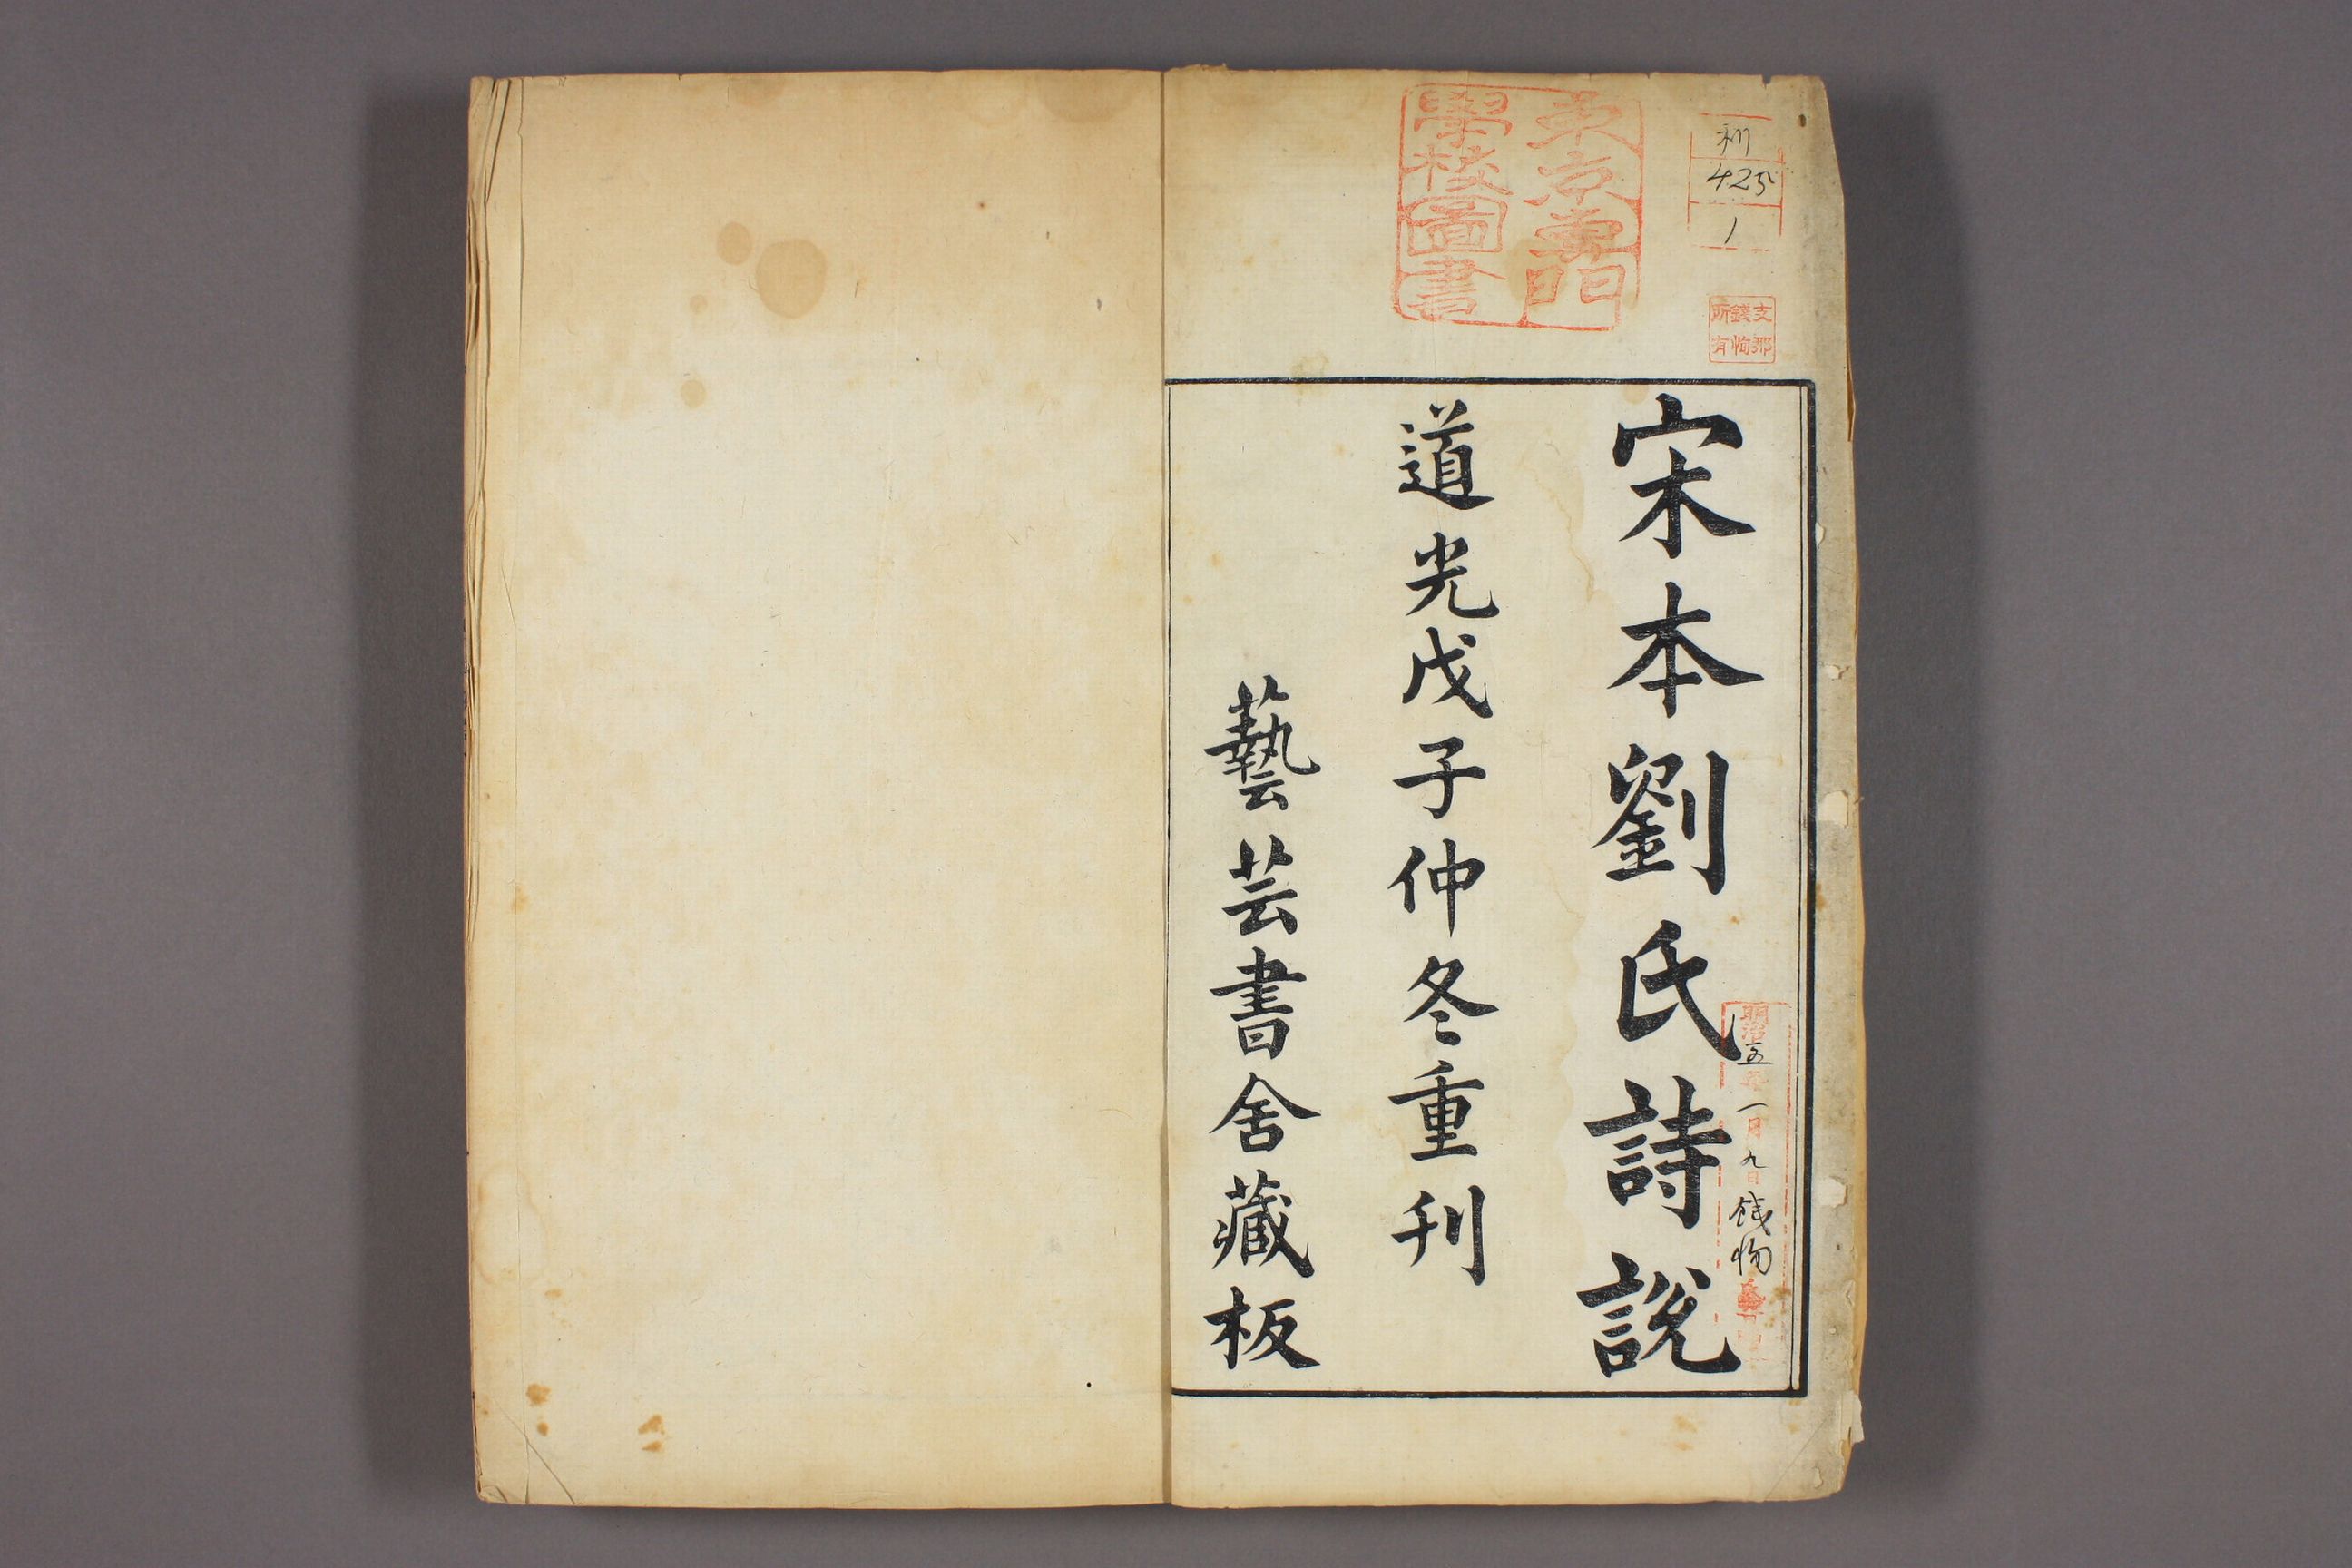 宋本劉氏詩說
道光戊子仲冬重刊
藝芸書舍藏板
東京專門
學校圖書
425
1
支那
錢恂
所有
明治五一月九日錢恂